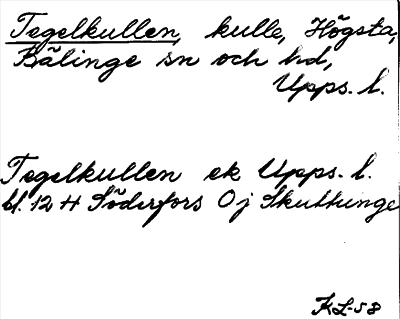 Tegelkullen, kulle, Högsta,
Bälinge sn och hd,
Upps. l.
Tegelkullen ek Upps. l.
bl. 12 H Söderfors Oj Skuttunge
KL-58